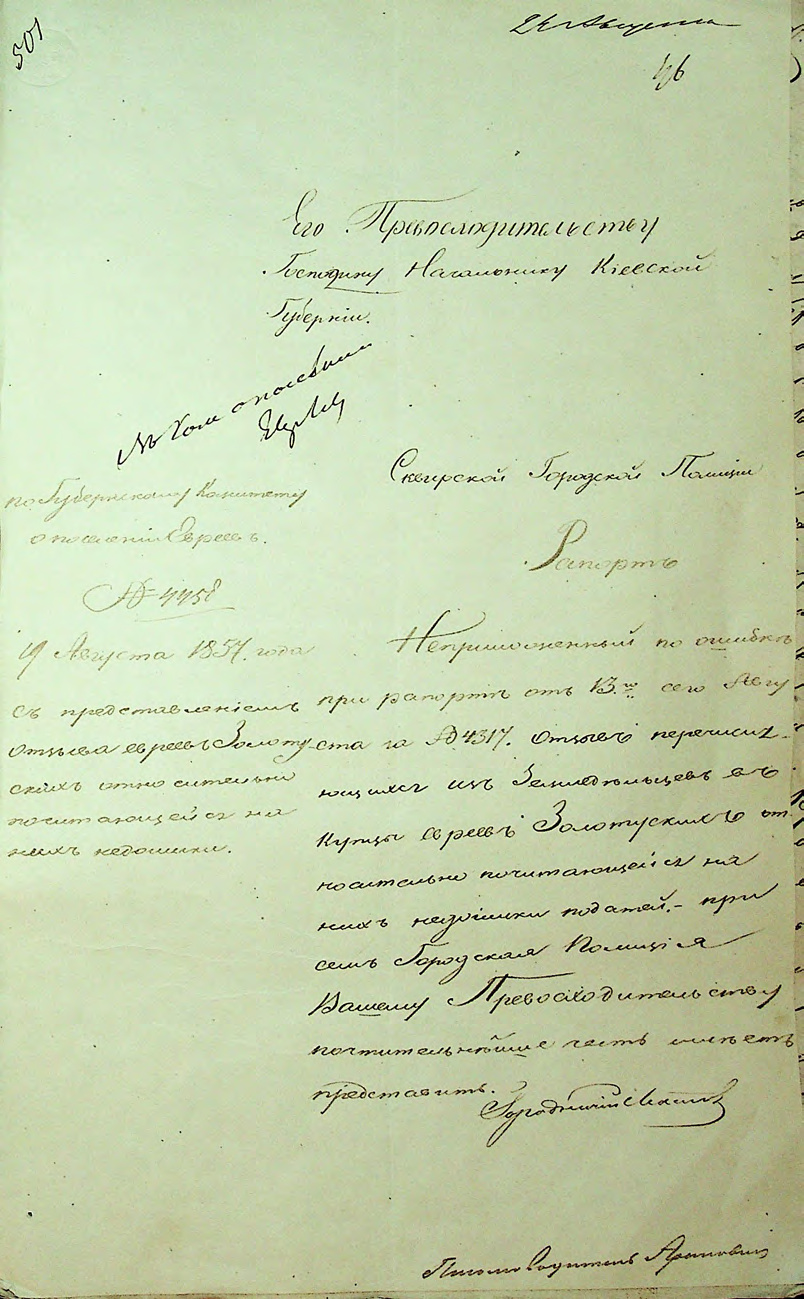 501
24 Августа
Его Превосходительству
Господину Начальнику Кіевской
Губерніи.
Сквирской Городской Полиціи
по Губернскому Комитету
о поселеніи Евреевъ.
Рапортъ
19 Августа 1857. года
съ представленіемъ
отзыва евреевъ Золоту-
скихъ относительно
почитающейся на
нихъ недоимки.
Неприложенный по ошибкѣ
при рапортѣ отъ 13.го сего Авгу
ста за № 4317. отзывъ перечисл-
ющихся изъ Земледѣльцевъ въ
Купцы евреевъ Золотускихъ от
носительно почитающейся на
нихъ недоимки податей.- при
семъ Городская Полиція
Вашему Превосходительству
почтительнѣйше честь имѣетъ
представить.
Городничій
Письмоводитель